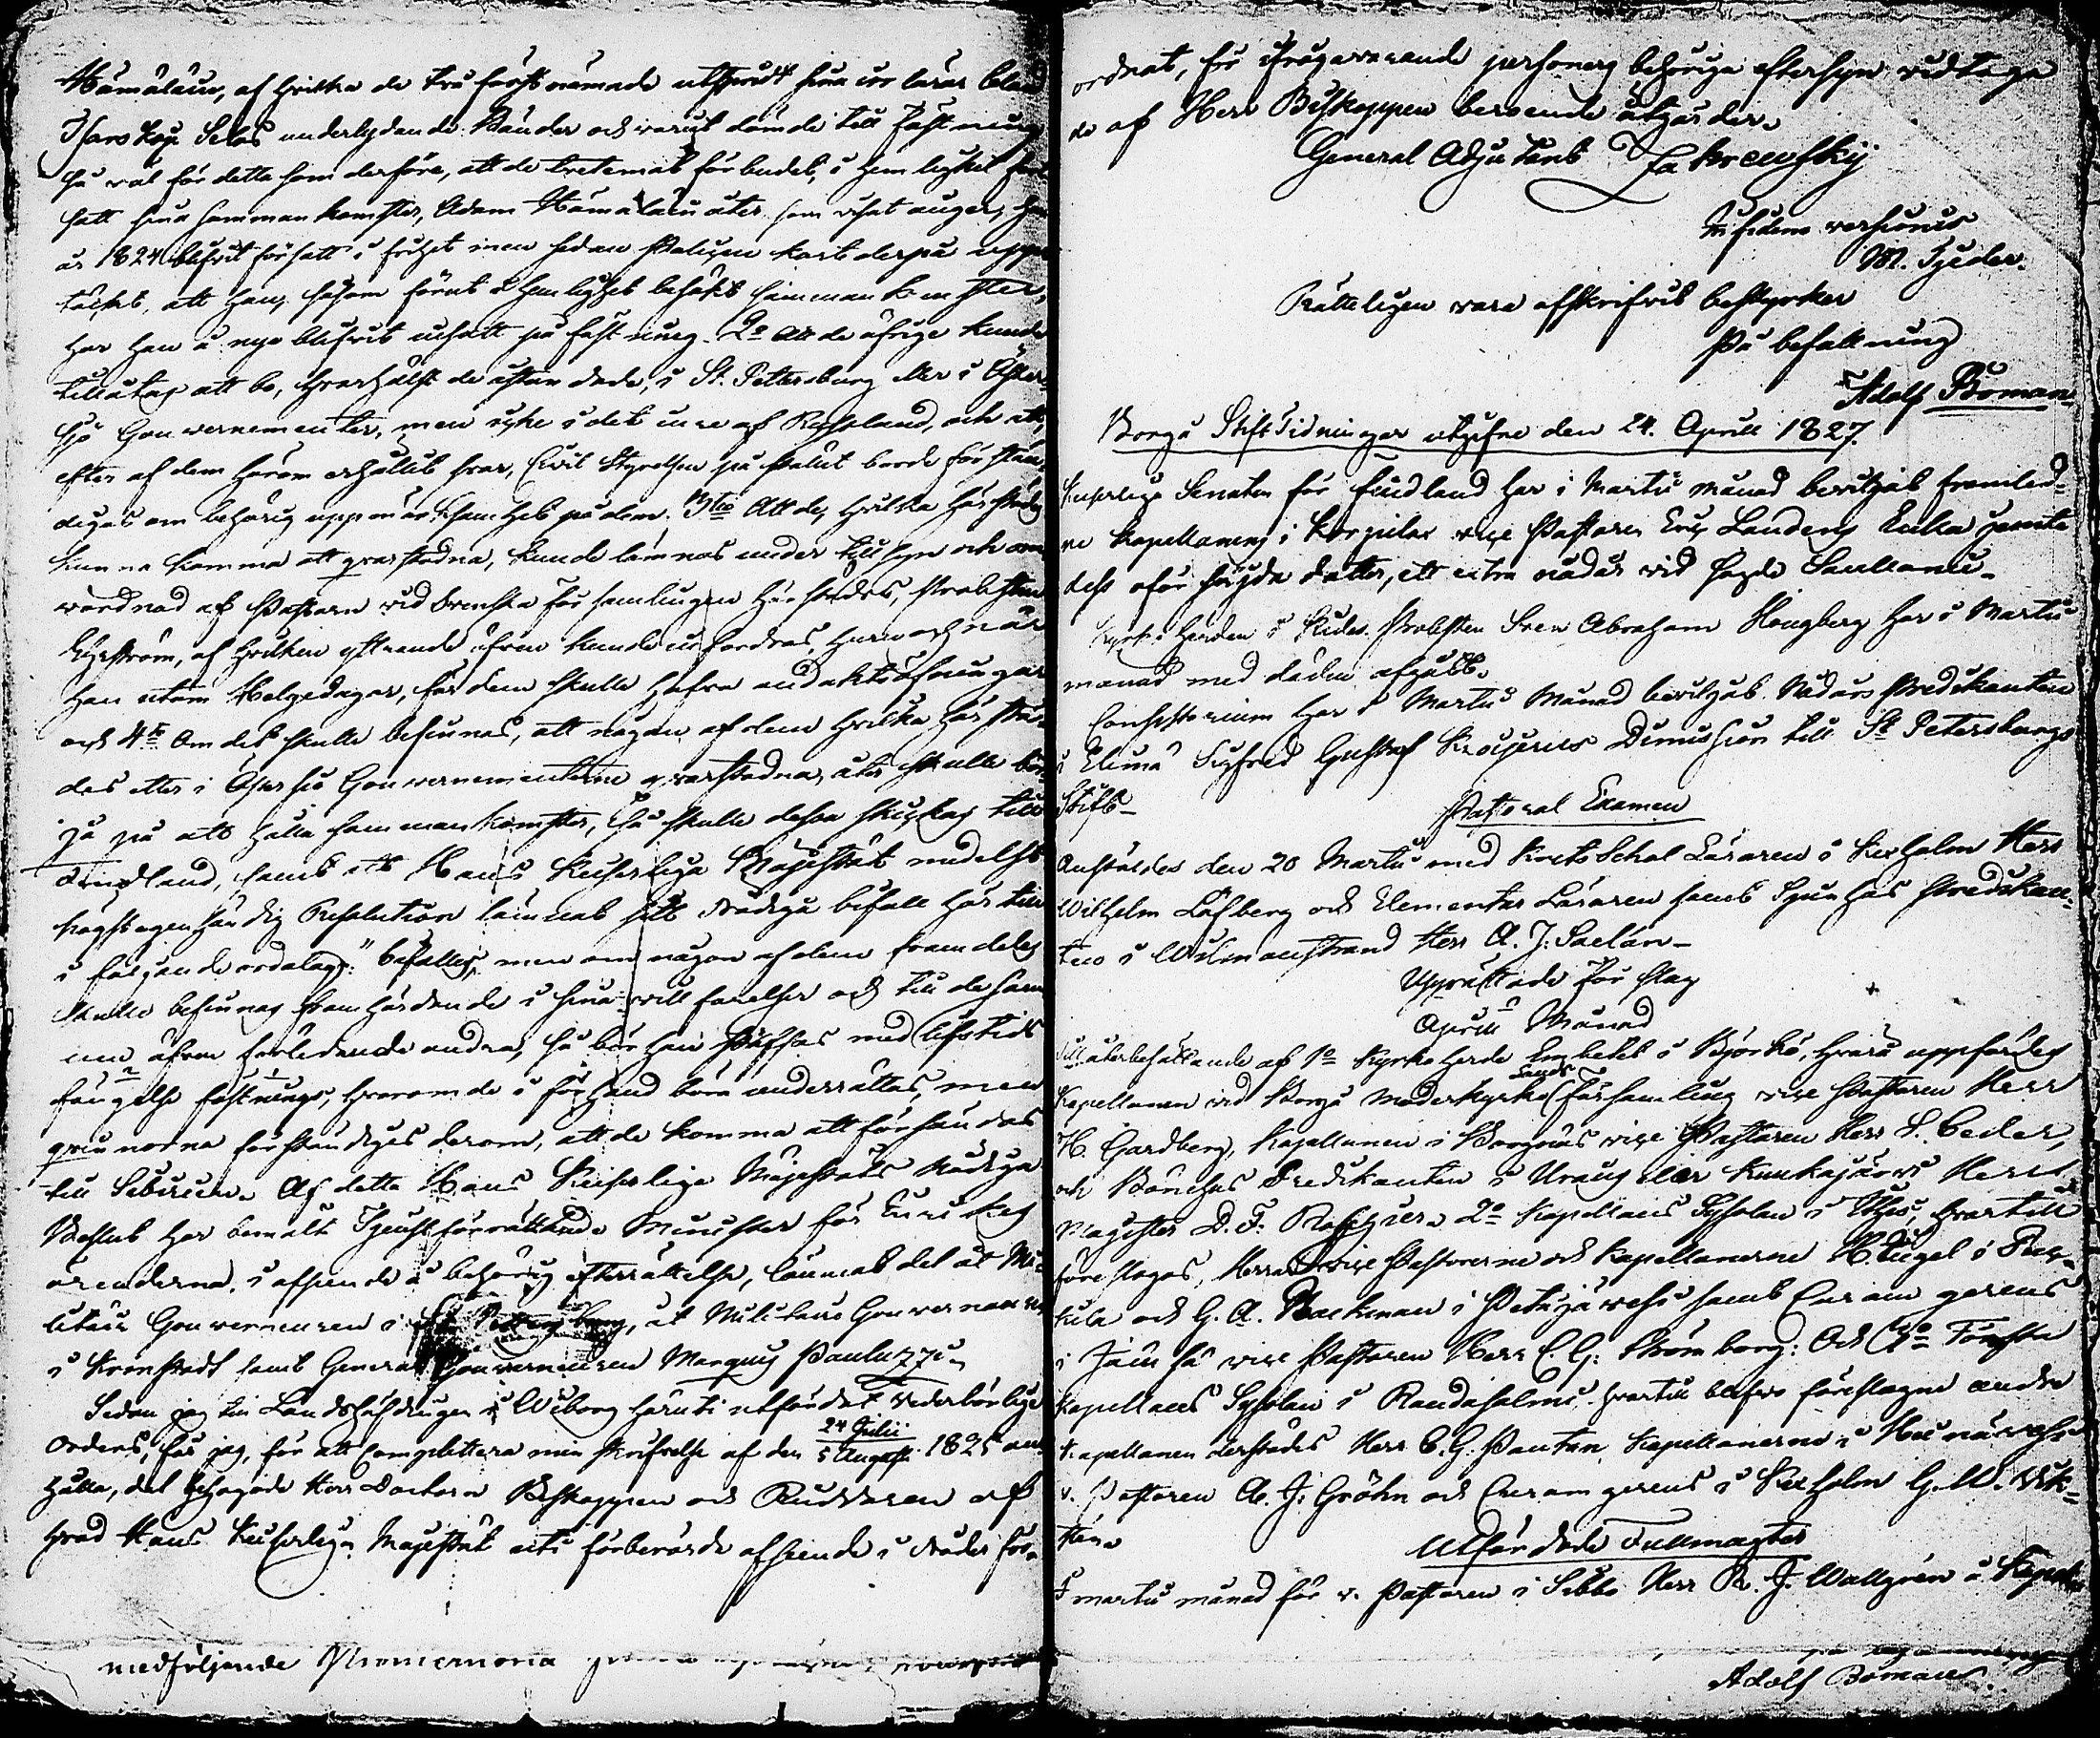 Hämäläin, af hvilka de tvu först nämnde utspridt sina irr läror bland
Zarskoje Selos underlydande Bönder och varit dömde till Fästning
så väl för detta som derföre, att de tvetemot förbudet, i hemlighet fort
satt sina sammankomster, Adam Hämäläin åter som visat ånger,
år 1824 blifvit försatt i frihet men sedan Polisen kort derpå upp
täckt, att han, såsom förut i hemlighet besökt sammankomster,
har han å nyo blifvit insatt på fästning. 2o att de öfrige kunde
tillåtas att bo, hvarhälst de åstundade, i St. Petersburg eller i Öster
sjö Gouvernementer, men icke i det inre af Ryssland, och att
efter af dem härom erhållit svar, Civil Styrelsen på stället borde förstän
digas om behörig uppmärksamhet på dem. 3tio Att de, hvilka härstädes
kunna komma att qvarstadna, kunde lämnas under tillsyn och om
vårdnad af Pastorn vid Svenska församlingen härstädes, Probsten
Ehrström, af hvilken yttrande äfven kunde infordras, huru och när
han utom Helgedagar, för dem skulle hafva andaktsöfningar
och 4to Om det skulle befinnas, att någon af dem hvilka härstä
des eller i Östersjö Gouvernementerne qvarstadna, åter skulle bör
ja på att hålla sammankomster, så skulle dessa skickas till
Finland, samt att Hans Kejserliga Majestät medelst
högst egenhändig Resolution lämnat sitt nådiga bifall här till
i följande ordalag: "befalles, men om någon af dem framdeles
skulle befinnas framhärdande i sina villfarelser och till desam
me äfven förledande andra, så bör han straffas med lifstids
fängelse fästnings, hvarom de i förhand böra underrättas, men
qvinnorna förständigas derom, att de komma att försändas
till Sibirien. Af detta Hans Kejserliga Majestäts Nådiga
Beslut har bemält Tjenst förrättande Minister för Inrikes
ärenderna, i afseende å behörig efterrättelse, lämnat del åt Mi
litair Gouverneuren i St. Petersburg, åt Militaire Gouverneuren
i Kronstadt samt General Gouverneuren Marquis Paulucci.
Sedan jag till Landshöfdingen i Wiborg härutj utfärdat vederbörlige
Orders, får jag, för att complettera min skrifvelse af den 24 Julii / 5 Augusti 1825 an
hålla, det behagade Herr Doctorn Biskoppen och Riddaren af
hvad Hans Kejserliga Majestät uti förberörde afseende i Nåder för
medföljande
ordnat, för ifrågavarande personers behöriga eftersyn vidtaga
de af Herr Biskoppen beroende åtgärder.
General Adjutant Zakrewskij
In fidem versionis
M. Tjeder.
Rätteligen vara afskrifvit bestyrker
På befallning
Adolf Boman
Borgå Stifts Tidningar utgifne den 24. Aprill 1827.
Kejserliga Senaten för Finland har i Martii månad beviljat framled
ne Kapellanens i Korpilax vice Pastoren Eric Landens Enka jemte
dess oförsörjda dotter, ett extra nådår vid sagde Capellanie.
Kyrkoherden i Rides. Probsten Sven Abraham Hougberg har i Martii
månad med döden afgått.
Consistorium har i Martii Månad beviljat Nådårs Predikanten
i Elimä Sigfrid Gustaf Krogerus Dimission till St Petersburgs
Stift.
Pastoral Examen
Anstäldes den 20 Martii med Krets Schol Läraren i Kexholm Herr
Wilhelm Löfberg och Elementar Läraren samt Spinhus Predikan
ten i Wilmanstrand Herr A. J. Saelan.
Upprättade Förslag
i Aprill Månad
Till återbesättande af 1o Kyrkoherde Embetet i Björkö, hvarå uppfördes
Kapellanen vid Borgå moderkyrko Lands församling vice Pastoren Herr
H. Gardberg, Kapellanen i Borgnäs vice Pastoren Herr S. Ceder,
och Bönehus Predikanten i Uraus eller Kunkajärvi Herr
Magister D. F. 2o Kapellans Sysslan i Itis, hvartill
föreslogos, Herrar vice Pastorerne och Kapellanerne H. Eugel i Pur
kila och G. A. Backman i Petäjävesi samt Curam gerens
i Jämsä vice Pastoren Herr C. G. Strömborg: Och 3o Första
Kapellans Sysslan i Randasalmi, hvartill blefvo föreslagne andre
Kapellanen derstädes Herr C. G. Pontan, Kapellanerne i Heinävesi
v. Pastoren A. J. Gröhn och Curam gerens i Kexholm G. W. Wik
stén.
Utfärdade Fullmagter
I martii månad för v. Pastoren i Sibbo Herr R. J. Wallgrén å Kapel
Adolf Boman